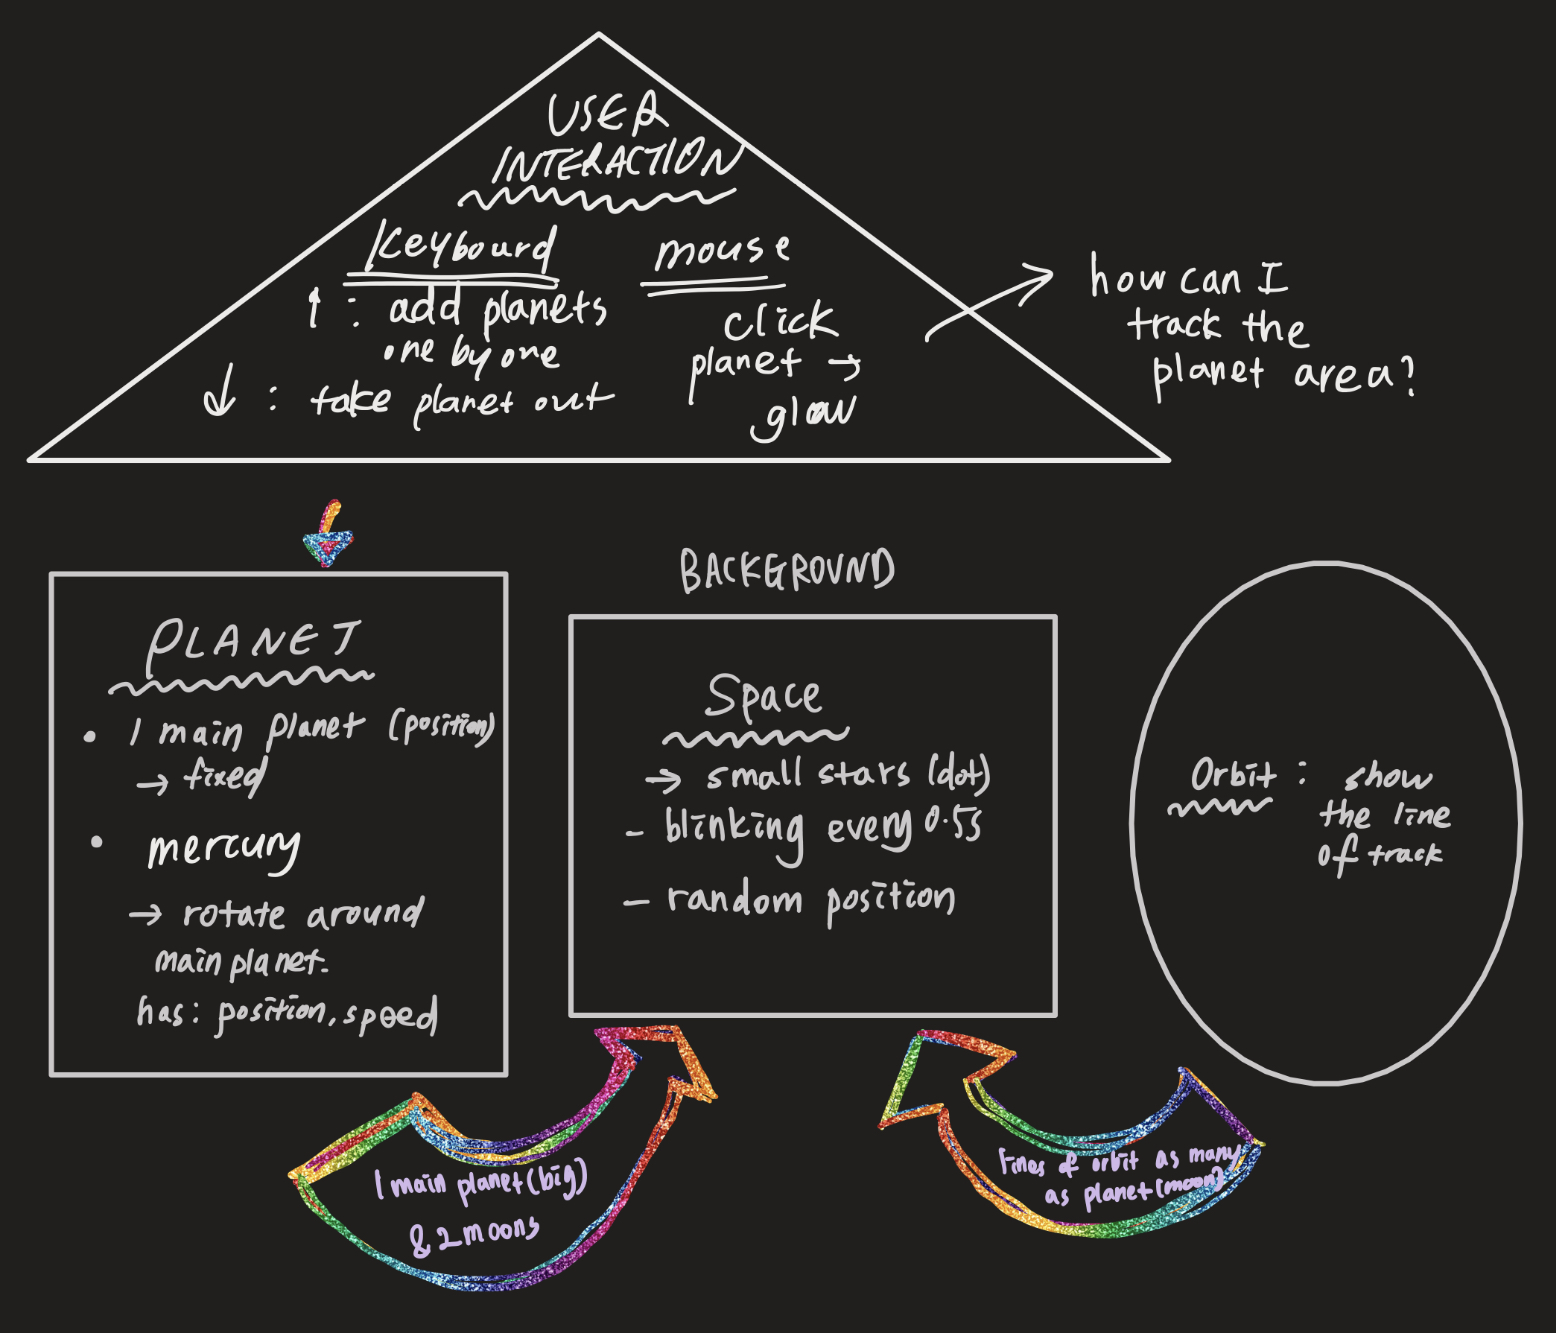 USER
INTERACTION
Keyboard
↑ : add planets
one by one
↓ : take planet out
mouse
click
planet →
glow
how can I
track the
planet area?
PLANET
• 1 main planet (position)
→ fixed
• mercury
→ rotate around
main planet.
has: position, speed
BACKGROUND
Space
→ small stars (dot)
- blinking every 0.5s
- random position
Orbit : show
the line
of track
1 main planet (big)
& 2 moons
lines of orbit as many
as planet (moon)